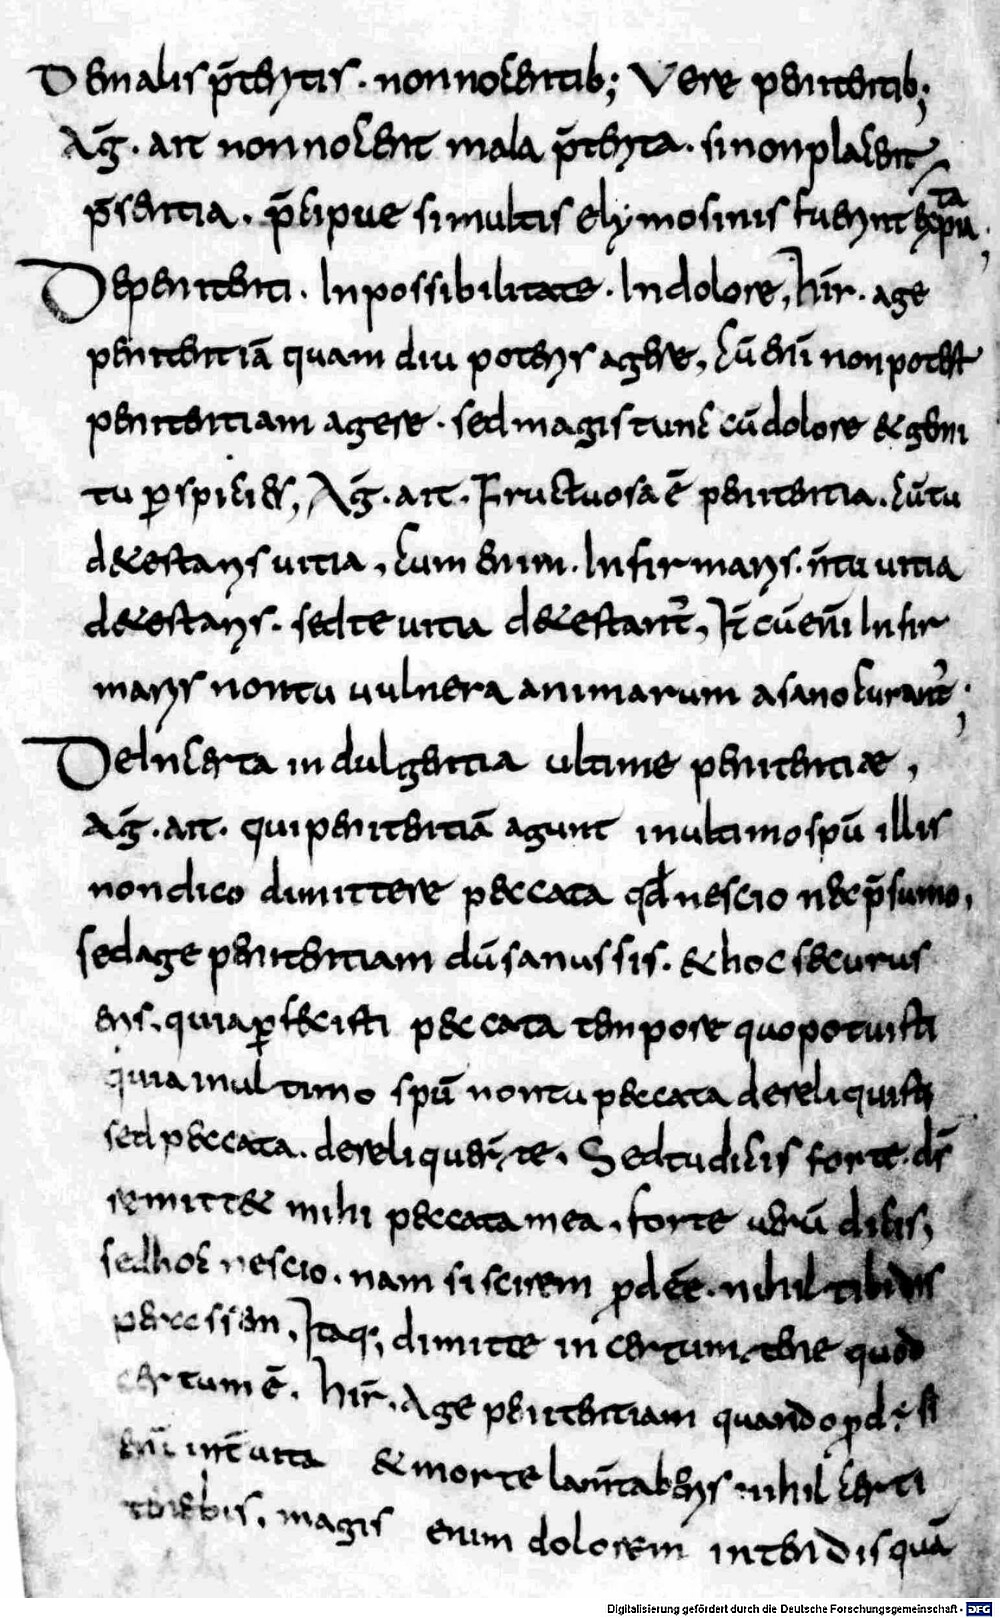 De malis p̄teritis · non nocentib; vere penitentib;
Ag̅ · ait non nocent mala p̄terita · si non placent
p̄sentia · p̄cipue si multis elymosinis fuerint expiata;
De penitenti · Inpossibilitate · In dolore, hir̄ · age
penitentiā quam diu poteris agere, cū eni̅ non potest
penitentiam agere · sed magis tunc cū dolore & gemi
tu ꝑspicies, Ag̅ · ait · Fructuosa ē penitentia · cū tu
detestaris uitia, cum enim · Infirmaris · n̄ tu uitia
detestaris · sed te uitia detestant̄, It̄ cū eni̅ Infir
maris non tu uulnera animarum a sano curant̄;
De Incerta indulgentia ultime penitentiae,
Ag̅ · ait · qui penitentiā agunt in ultimo spū illis
non dico dimittere peccata qd̄ nescio nec p̄sumo,
sed age penitentiam dū sanus sis · & hoc securus
eris, quia ꝑfecisti peccata tempore quo potuisti
quia in ultimo spū non tu peccata dereliquisti
sed peccata · dereliquer̄ te · Sed tu dicis forte · ds̄
remittet mihi peccata mea, forte uerū dicis,
sed hoc nescio · nam si scirem ꝓdeē · nihil tibi
Itaq; dimitte incertum tene quod
certum ē · hir̄ · Age penitentiam quando
& morte nihil certi
magis enim dolorem intendis quā